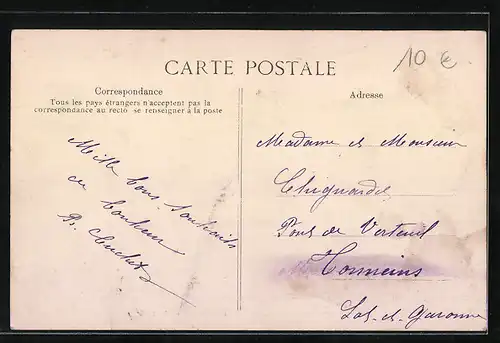 10 €
CARTE POSTALE
Correspondance
Tous les pays étrangers n'acceptent pas la
correspondance au recto se renseigner à la poste
Adresse
Mille bons souhaits
de bonheur
Madame et Monsieur
Pont de Verteuil
Tonneins
Lot-et-Garonne